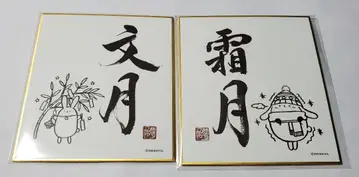 文月
霜月